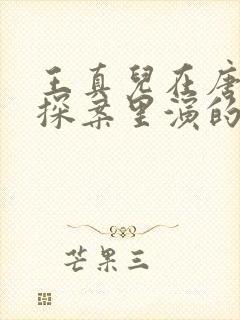 王真兒在唐
探案里演的
芒果三